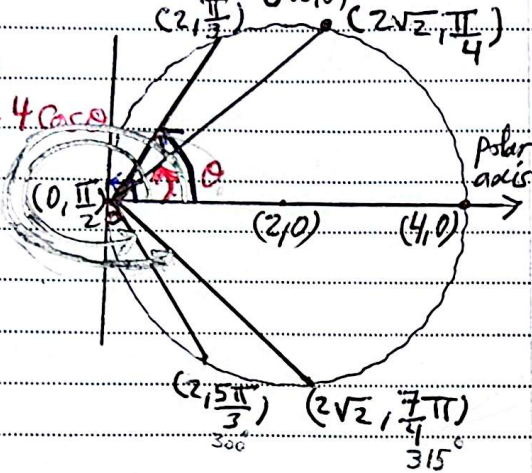 (2, π/3)
(2√2, π/4)
4 cos θ
θ
polar
axis
(0, π/2)
(2,0)
(4,0)
(2, 5π/3)
(2√2, 7/4 π)
300°
315°